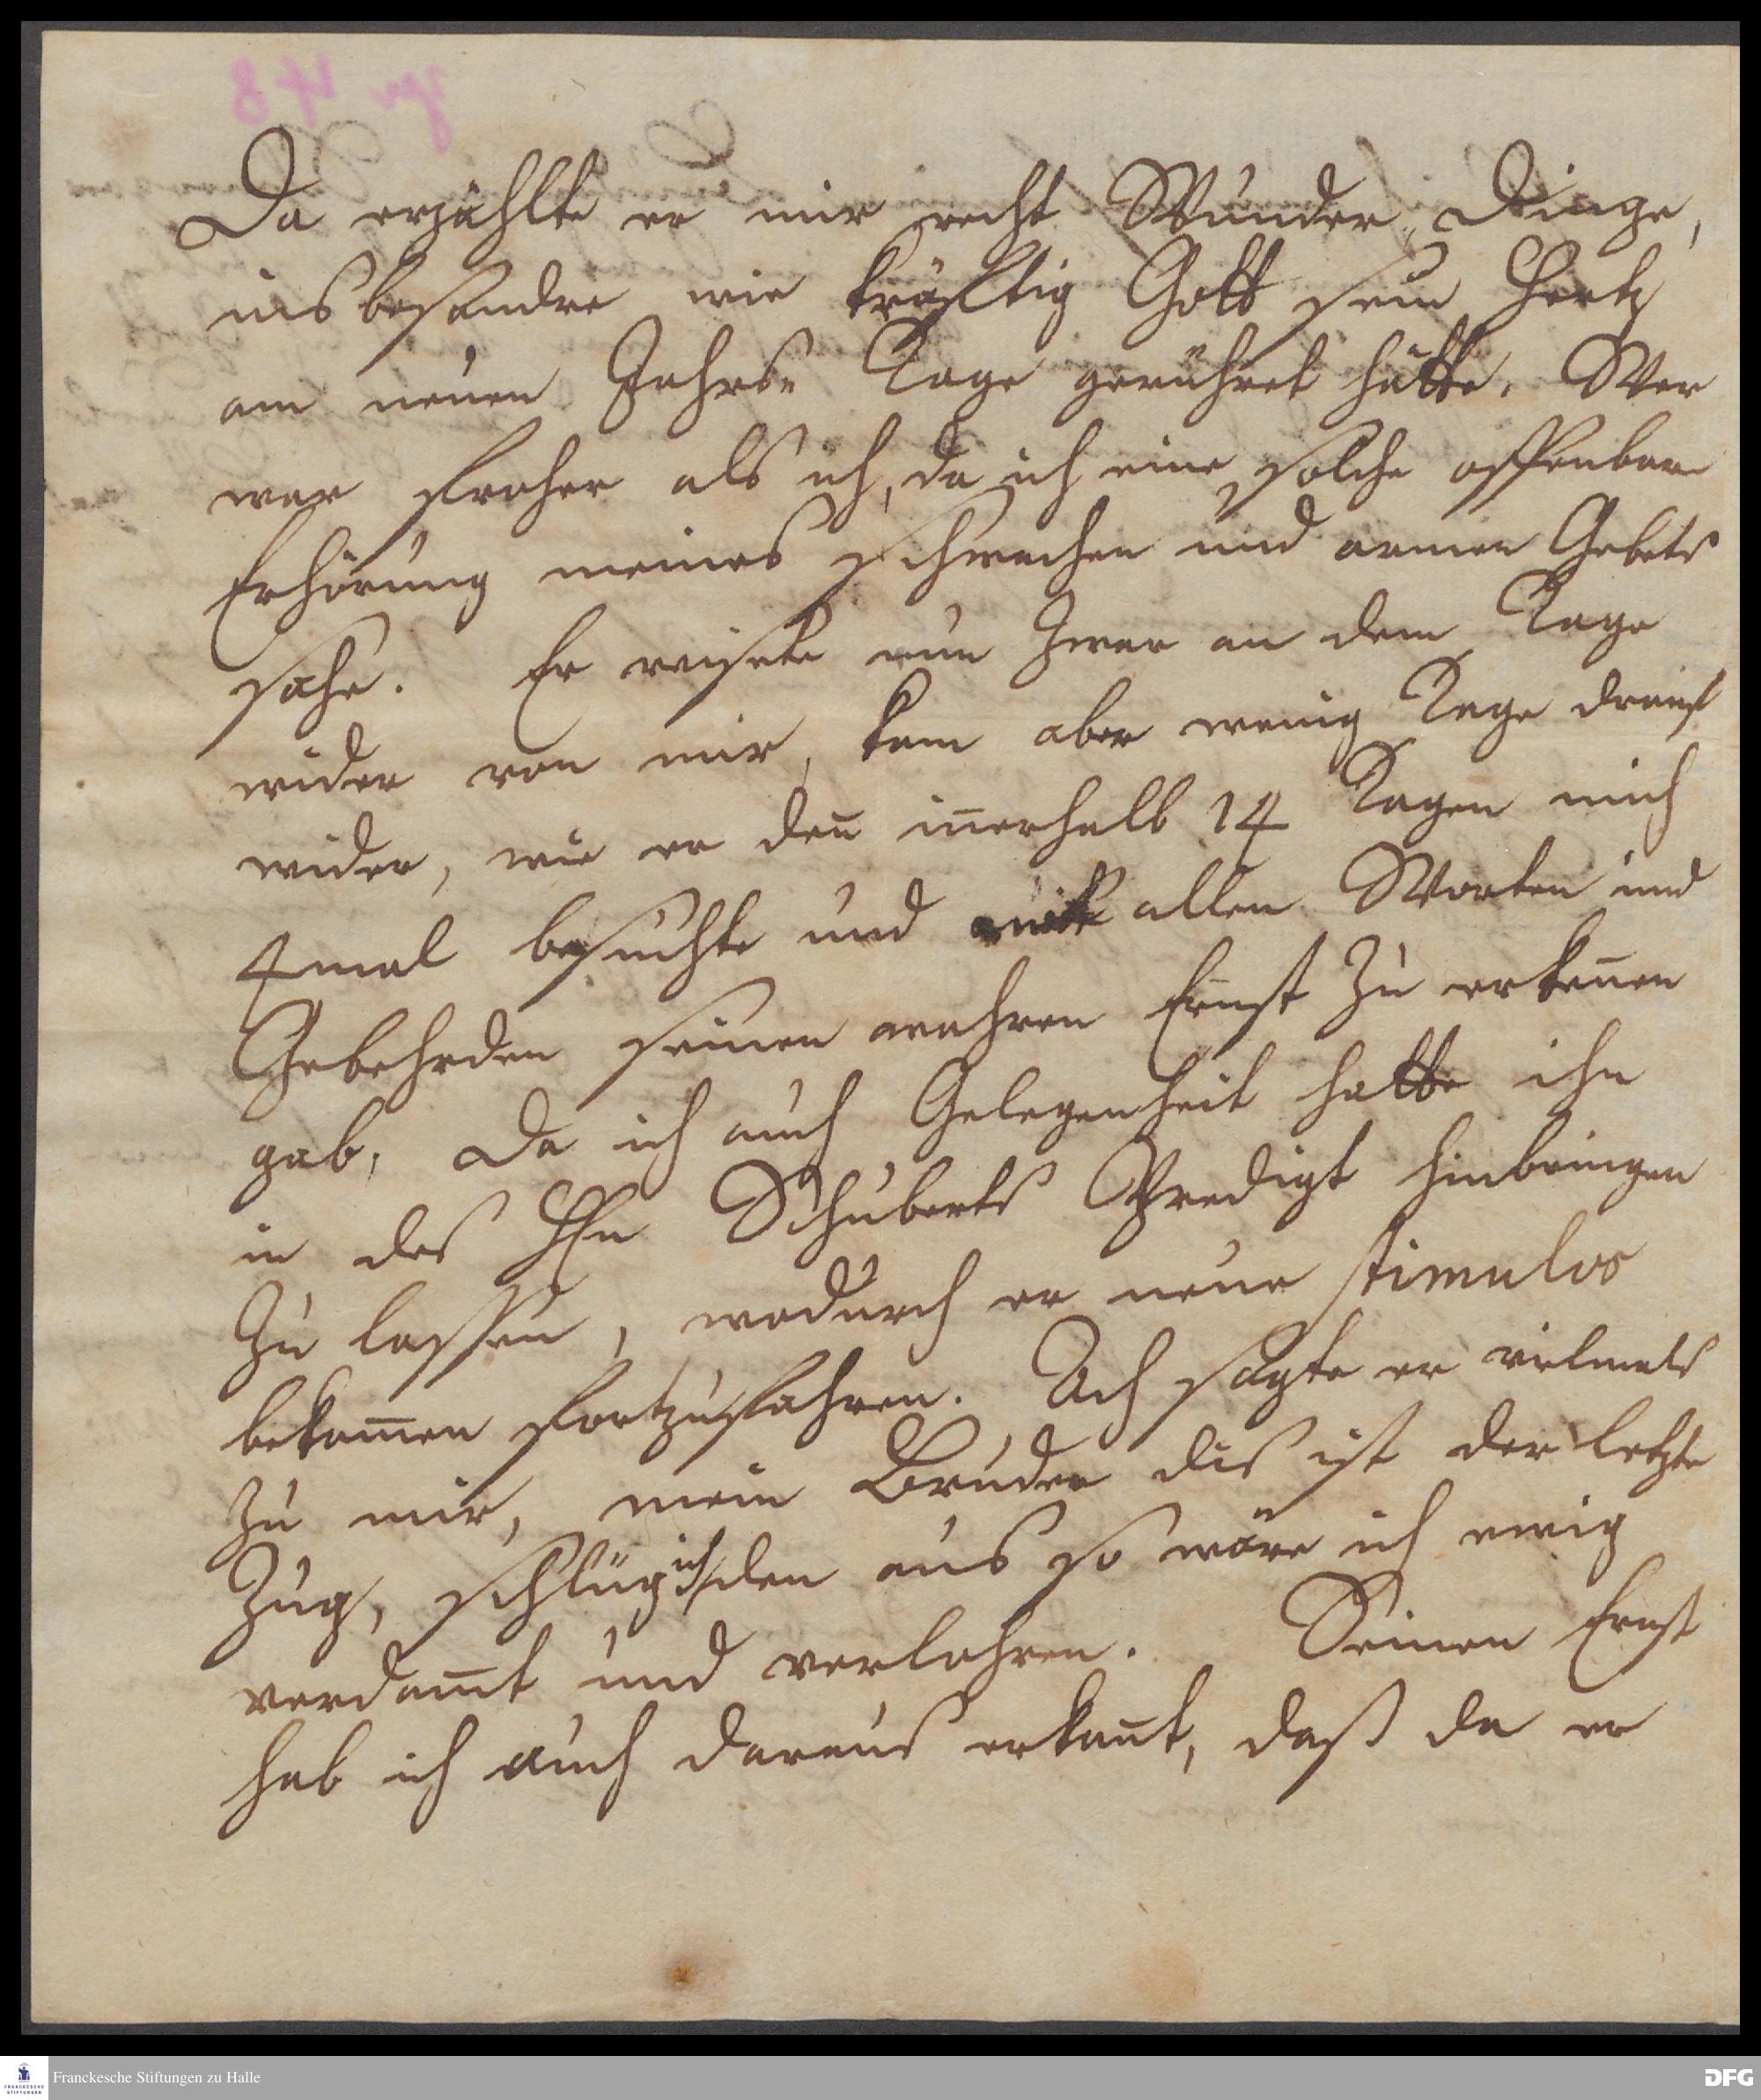 Da erzählte er mir recht Wunder Dinge,
insbesondre wie kräftig Gott sein Hertz
am neuen Jahrs- Tage gerühret hätte. Wer
war froher als ich, da ich eine solche offenbare
Erhörung meines schwachen und armen Gebets
sahe. Er reisete nun zwar an dem Tage
wider von mir, kam aber wenig Tage drauf
wider, wie er deñ iñerhalb 14 Tagen mich
4mal besuchte und mit allen Worten und
Gebehrden seinen wahren Ernst zu erkeñen
gab, Da ich auch Gelegenheit hatte ihn
in des HEn Schuberts Predigt hinbringen
zu lassen, wodurch er neue stimulos
bekom̃en fortzufahren. Ach sagte er vielmals
zu mir, mein Bruder dis ist der letzte
Zug, schlüg ich den aus so wäre ich ewig
verdam̃t und verlohren. Seinen Ernst
hab ich auch daraus erkañt, daß da er
Franckesche Stiftungen zu Halle
FRANCKESCHE
STIFTUNGEN
DFG